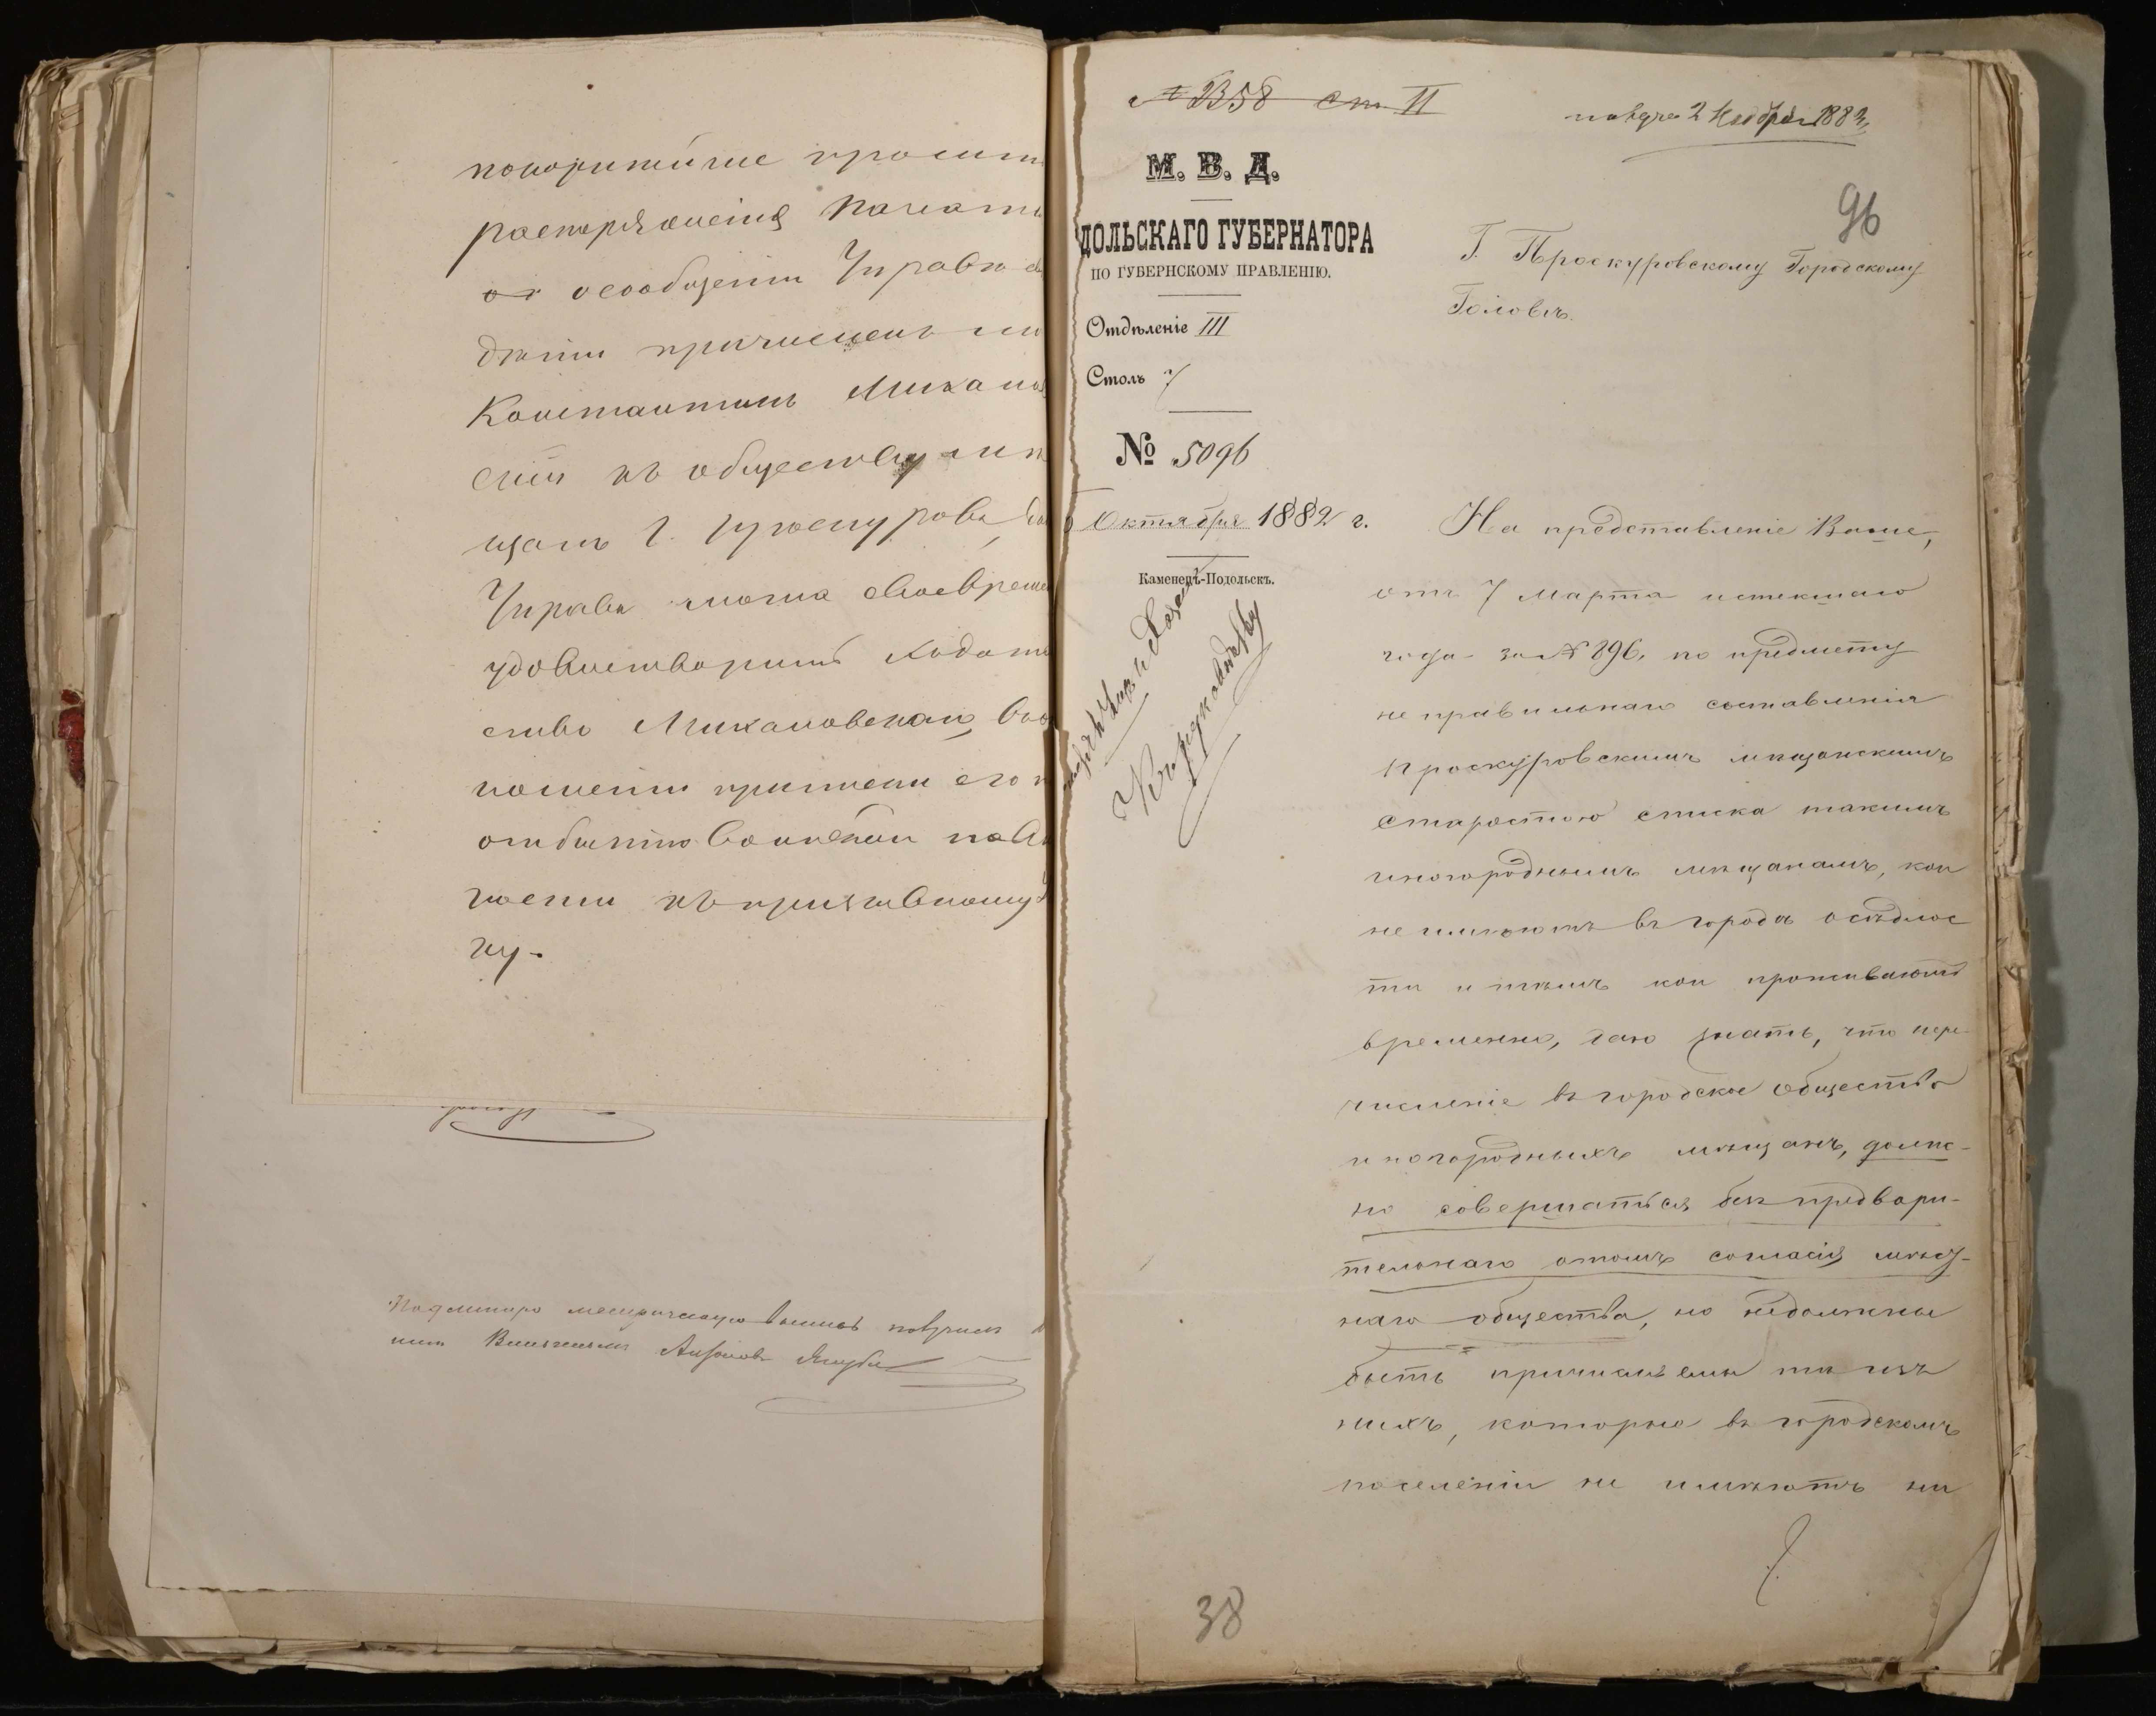 покорнѣйше просить
распоряженія Палаты
о сообщеніи Управѣ
причисленъ ли
Константинъ Михалов
скій къ обществу
щанъ г. Проскурова,
Управа могла своевреме
удовлетворить ходата
ство Михаловскаго,
отбытію воинской повин
ности къ призывному
ку.
Подлинную метрическую выпись получилъ
№ 1358 ст. II
получ 2 Ноября 1882
96
М. В. Д.
ДОЛЬСКАГО ГУБЕРНАТОРА
ПО ГУБЕРНСКОМУ ПРАВЛЕНІЮ.
Отдѣленіе III
Столъ 7
№ 5096
Октября 1882 г.
Каменецъ-Подольскъ.
Г. Проскуровскому Городскому
Головѣ.
На представленіе Ваше,
отъ 7 Марта истекшаго
года за № 896, по предмету
неправильнаго составленія
Проскуровскимъ мѣщанскимъ
старостою списка такимъ
иногороднымъ мѣщанамъ, кои
не имѣютъ въ городѣ осѣдлос
ти и тѣмъ кои проживаютъ
временно, даю знать, что пере-
численіе въ городское общество
иногородныхъ мѣщанъ, долж-
но совершаться безъ предвари-
тельнаго отомъ согласія мѣст-
наго общества, но недолжны
быть причисляемы тѣ изъ
нихъ, которые въ городскомъ
поселеніи не имѣютъ ни
38